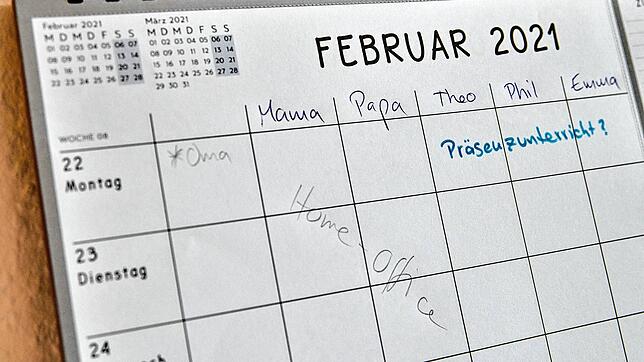 Februar 2021
M D M D F S S
01 02 03 04 05 06 07
08 09 10 11 12 13 14
15 16 17 18 19 20 21
22 23 24 25 26 27 28
März 2021
M D M D F S S
01 02 03 04 05 06 07
08 09 10 11 12 13 14
15 16 17 18 19 20 21
22 23 24 25 26 27 28
29 30 31
FEBRUAR 2021
Mama Papa Theo Phil Emma
WOCHE 08
22
Montag
*Oma
Präsenzunterricht?
Home-Office
23
Dienstag
24